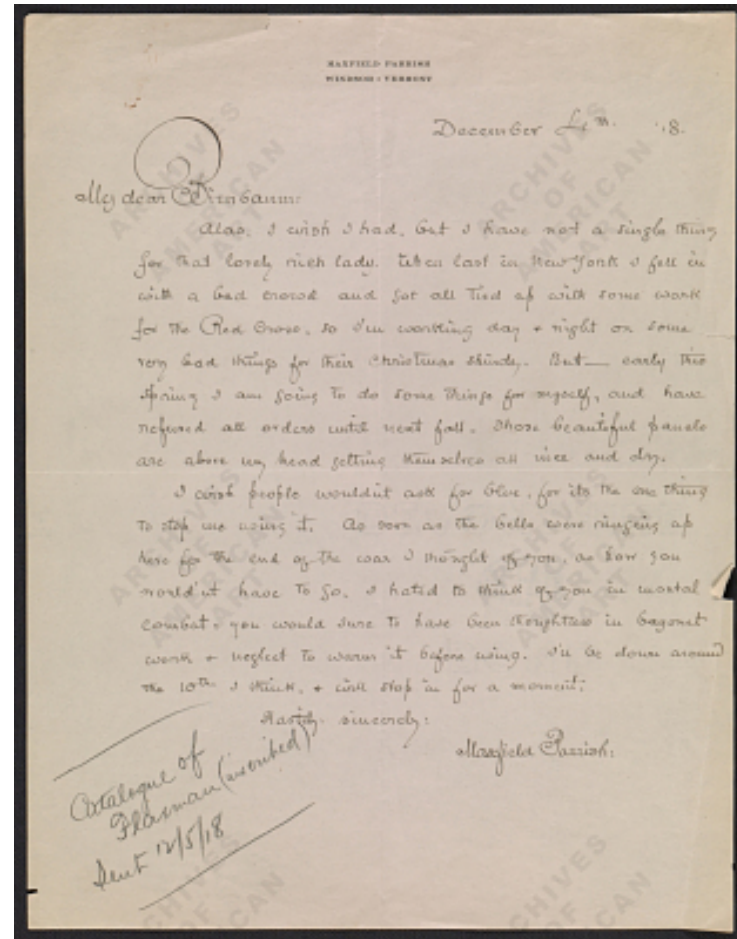 MAXFIELD PARRISH
WINDSOR : VERMONT
December 4th. '18.
My dear Birnbaum:
Alas, I wish I had, but I have not a single thing
for that lovely rich lady. When last in New York I fell in
with a bad crowd and got all tied up with some work
for the Red Cross, so I'm working day + night on some
very bad things for their Christmas shindy. But — early this
spring I am going to do some things for myself, and have
refused all orders until next fall. Those beautiful panels
are above my head getting themselves all nice and dry.
I wish people wouldn't ask for blue, for its the one thing
to stop me using it. As soon as the bells were ringing up
here for the end of the war I thought of you, as how you
would'nt have to go. I hated to think of you in mortal
combat: you would sure to have been thoughtless in bayonet
work + neglect to warm it before using. I'll be down around
the 10th I think, + will stop in for a moment:
Hastily sincerely:
Maxfield Parrish:
Catalogue of
Flaxman (inscribed)
Sent 12/5/18
ARCHIVES
OF
AMERICAN
ART